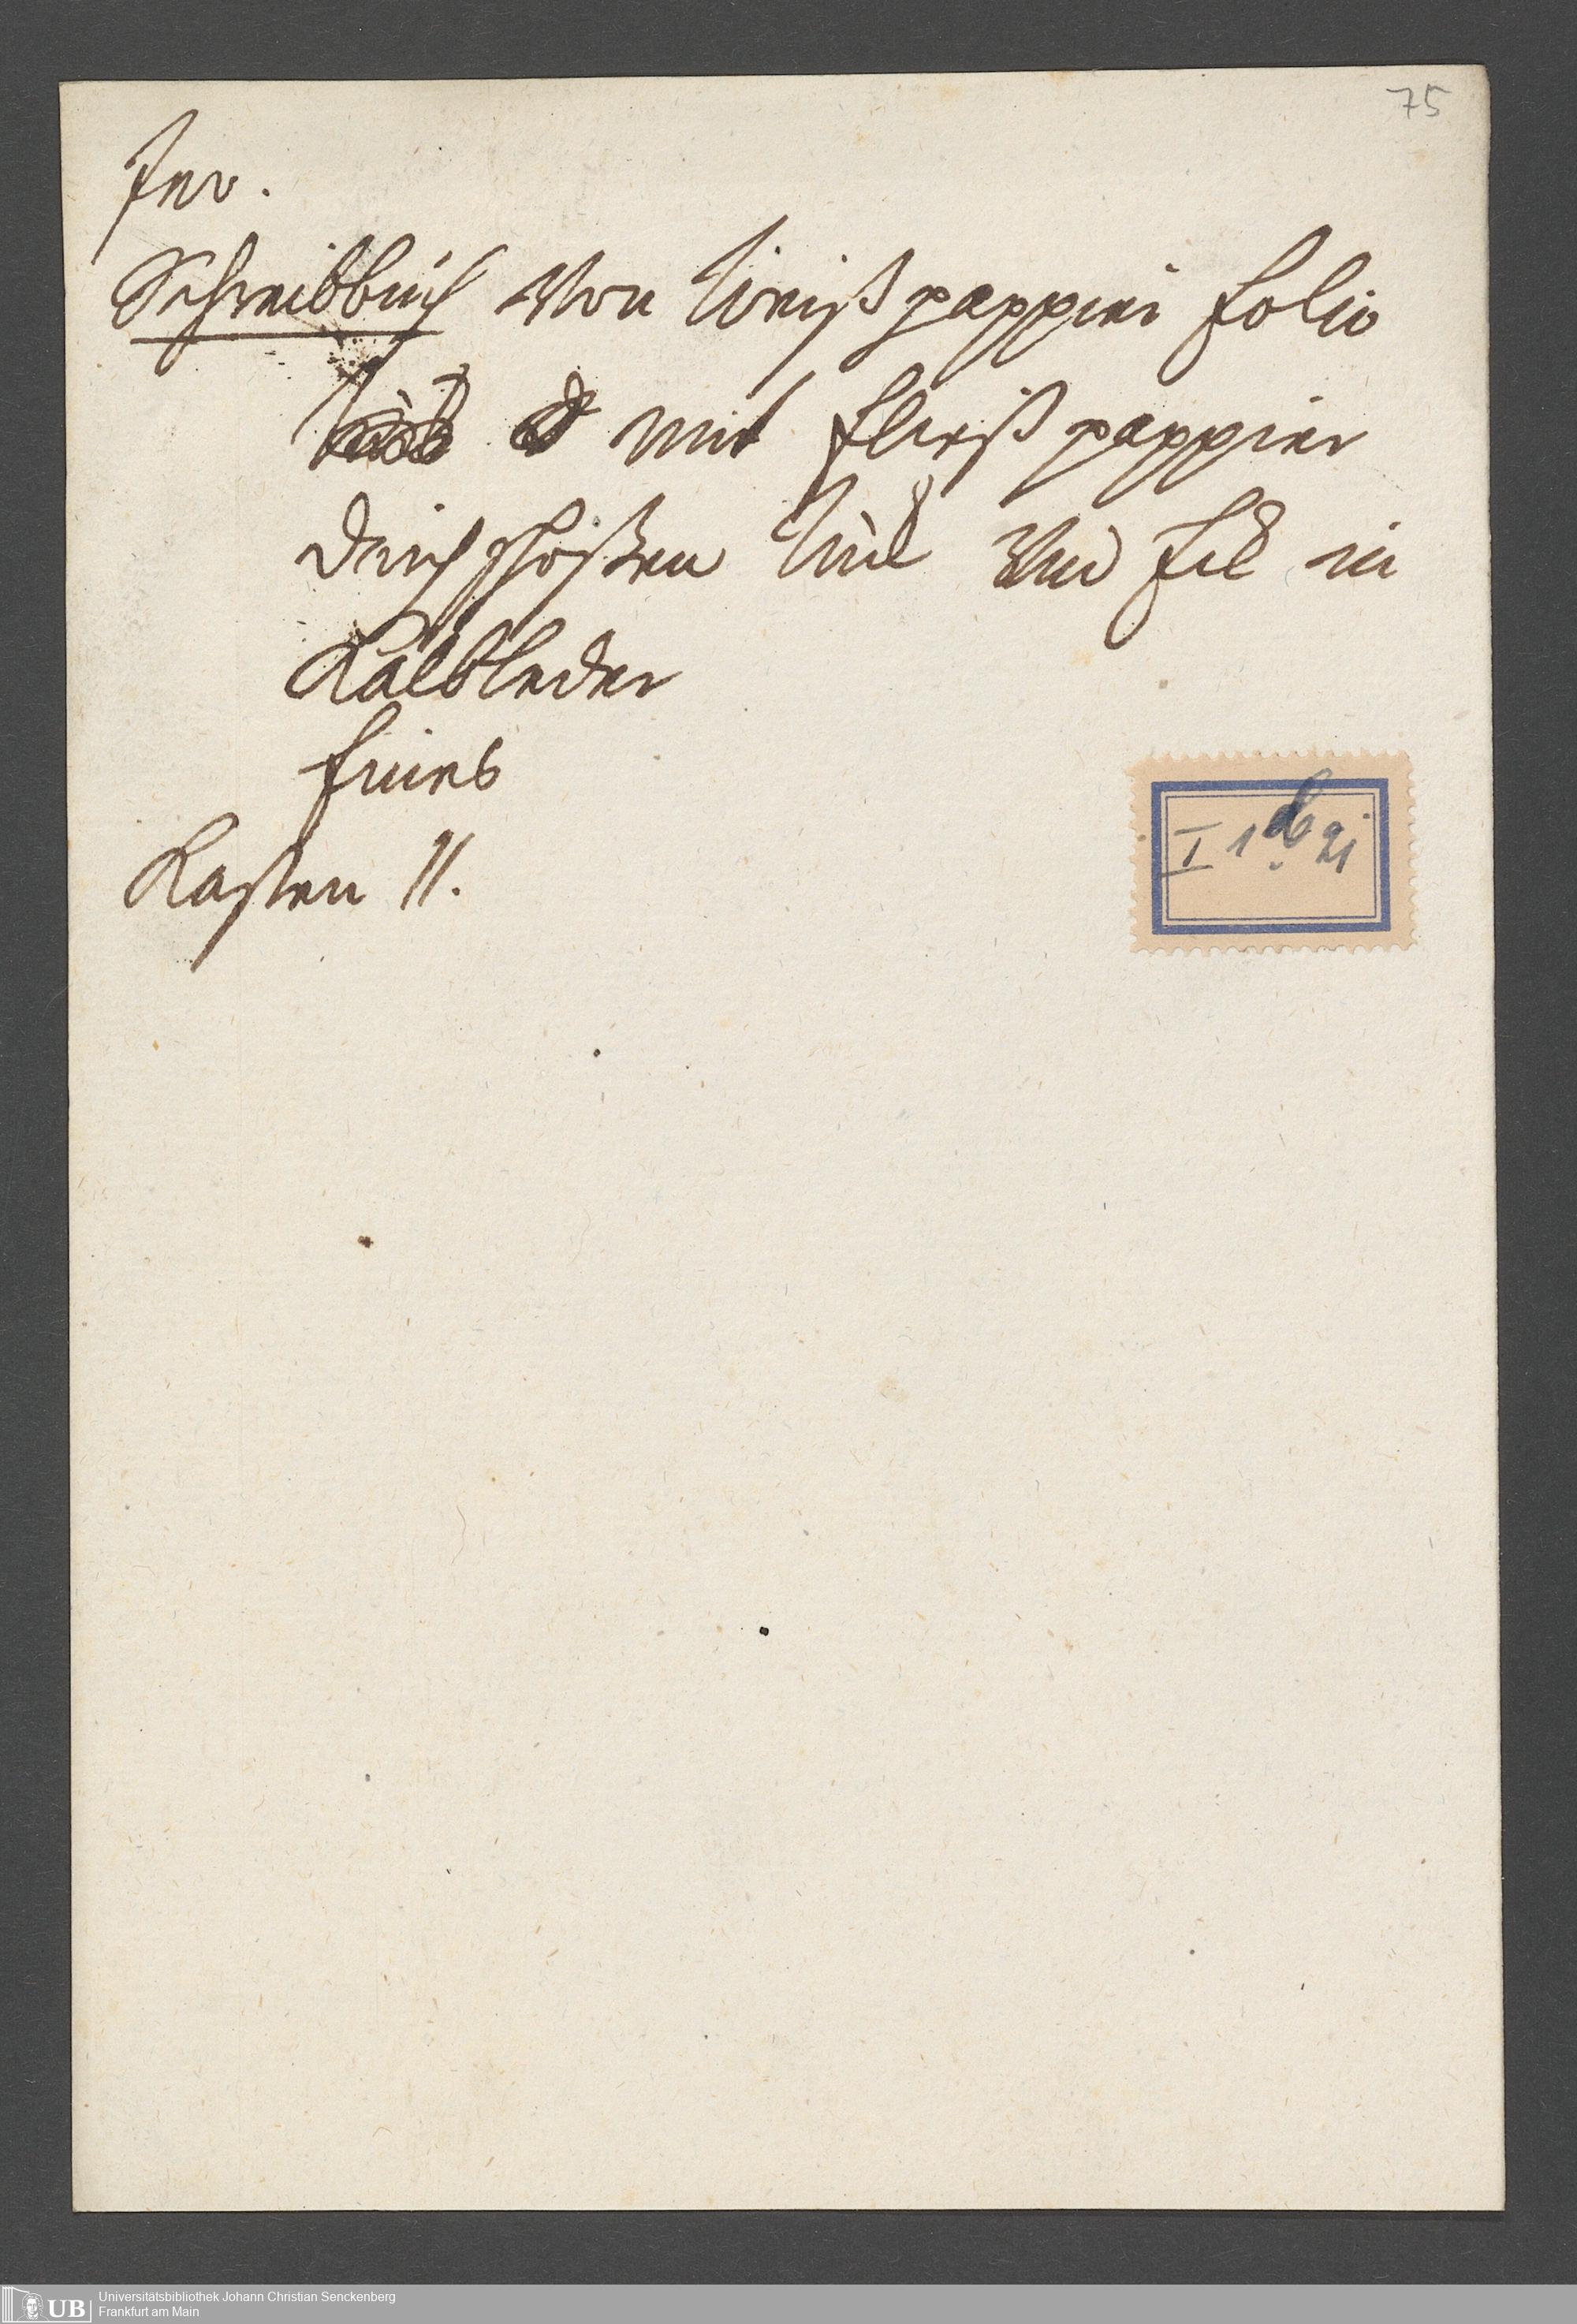 75
Inv.
Schreibbuch von Weiß pappier folio
mit fließ pappier
durchschoßen und in
Kalbleder
Kasten 11.
I 1
Universitätsbibliothek Johann Christian Senckenberg
Frankfurt am Main
UB